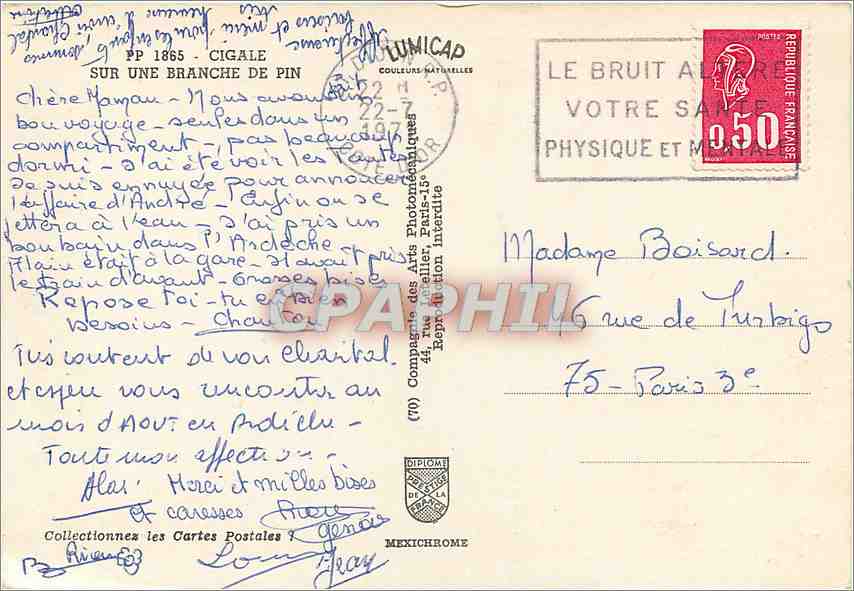 PP 1865 - CIGALE
SUR UNE BRANCHE DE PIN
LUMICAP
COULEURS NATURELLES
Chère Maman - Nous avons fait
bon voyage - seules dans un
compartiment -, pas beaucoup
dormi - J'ai été voir les
Je suis ennuyée pour annoncer
l'affaire d'André - Enfin on se
jettera à l'eau - J'ai pris un
bon bain dans l'Ardèche
Alain était à la gare - Il avait pris
le train d'avant - Grosses bises
Repose toi - tu en as bien
besoin -
Très content de voir Chantal
et espère vous rencontrer au
mois d'Août en Ardèche -
Toute mon affection -
Merci et milles bises
et caresses
Collectionnez les Cartes Postales !
(70) Compagnie des Arts Photomécaniques
44, rue Letellier, Paris-15e
Reproduction interdite
DIPLOME
PRESTIGE
DE LA
FRANCE
MEXICHROME
22-7
COTE D'OR
LE BRUIT ALTERE
VOTRE SANTE
PHYSIQUE ET MENTALE
POSTES
REPUBLIQUE FRANÇAISE
0,50
Madame Boisard.
46 rue de Turbigo
75 - Paris 3e
CPAPHIL